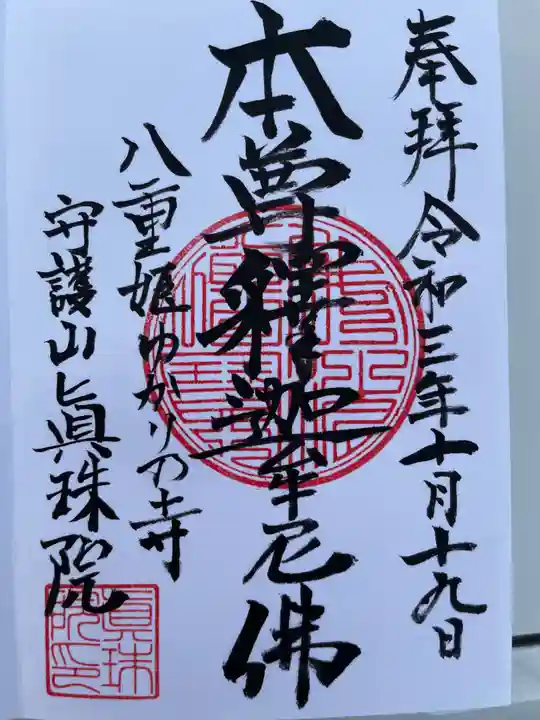 奉拝 令和三年十月十九日
本尊釋迦牟尼佛
八重姫ゆかり乃寺
守護山眞珠院
眞珠院印